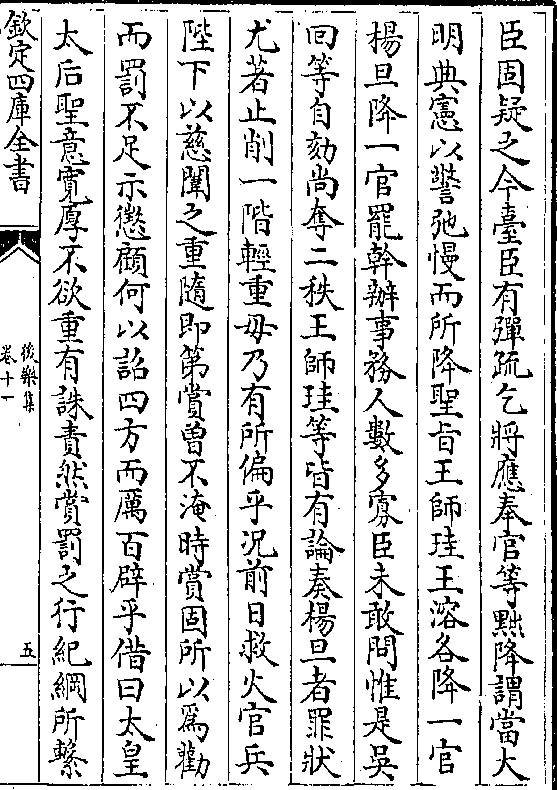 臣固疑之今臺臣有彈疏乞將應奉官等黜降謂當大
明典憲以警弛慢而所降聖旨王師珪王溶各降一官
楊旦降一官罷幹辦事務人數多寡臣未敢問惟是吳
回等自劾尚奪二秩王師珪等皆有論奏楊旦者罪狀
尤著止削一階輕重毋乃有所偏乎況前日救火官兵
陛下以慈闈之重隨即第賞曽不淹時賞固所以爲勸
而罰不足示懲顧何以詔四方而厲百辟乎借曰太皇
太后聖意寛厚不欲重有誅責然賞罰之行紀綱所繫
欽定四庫全書
後樂集
卷十一
五